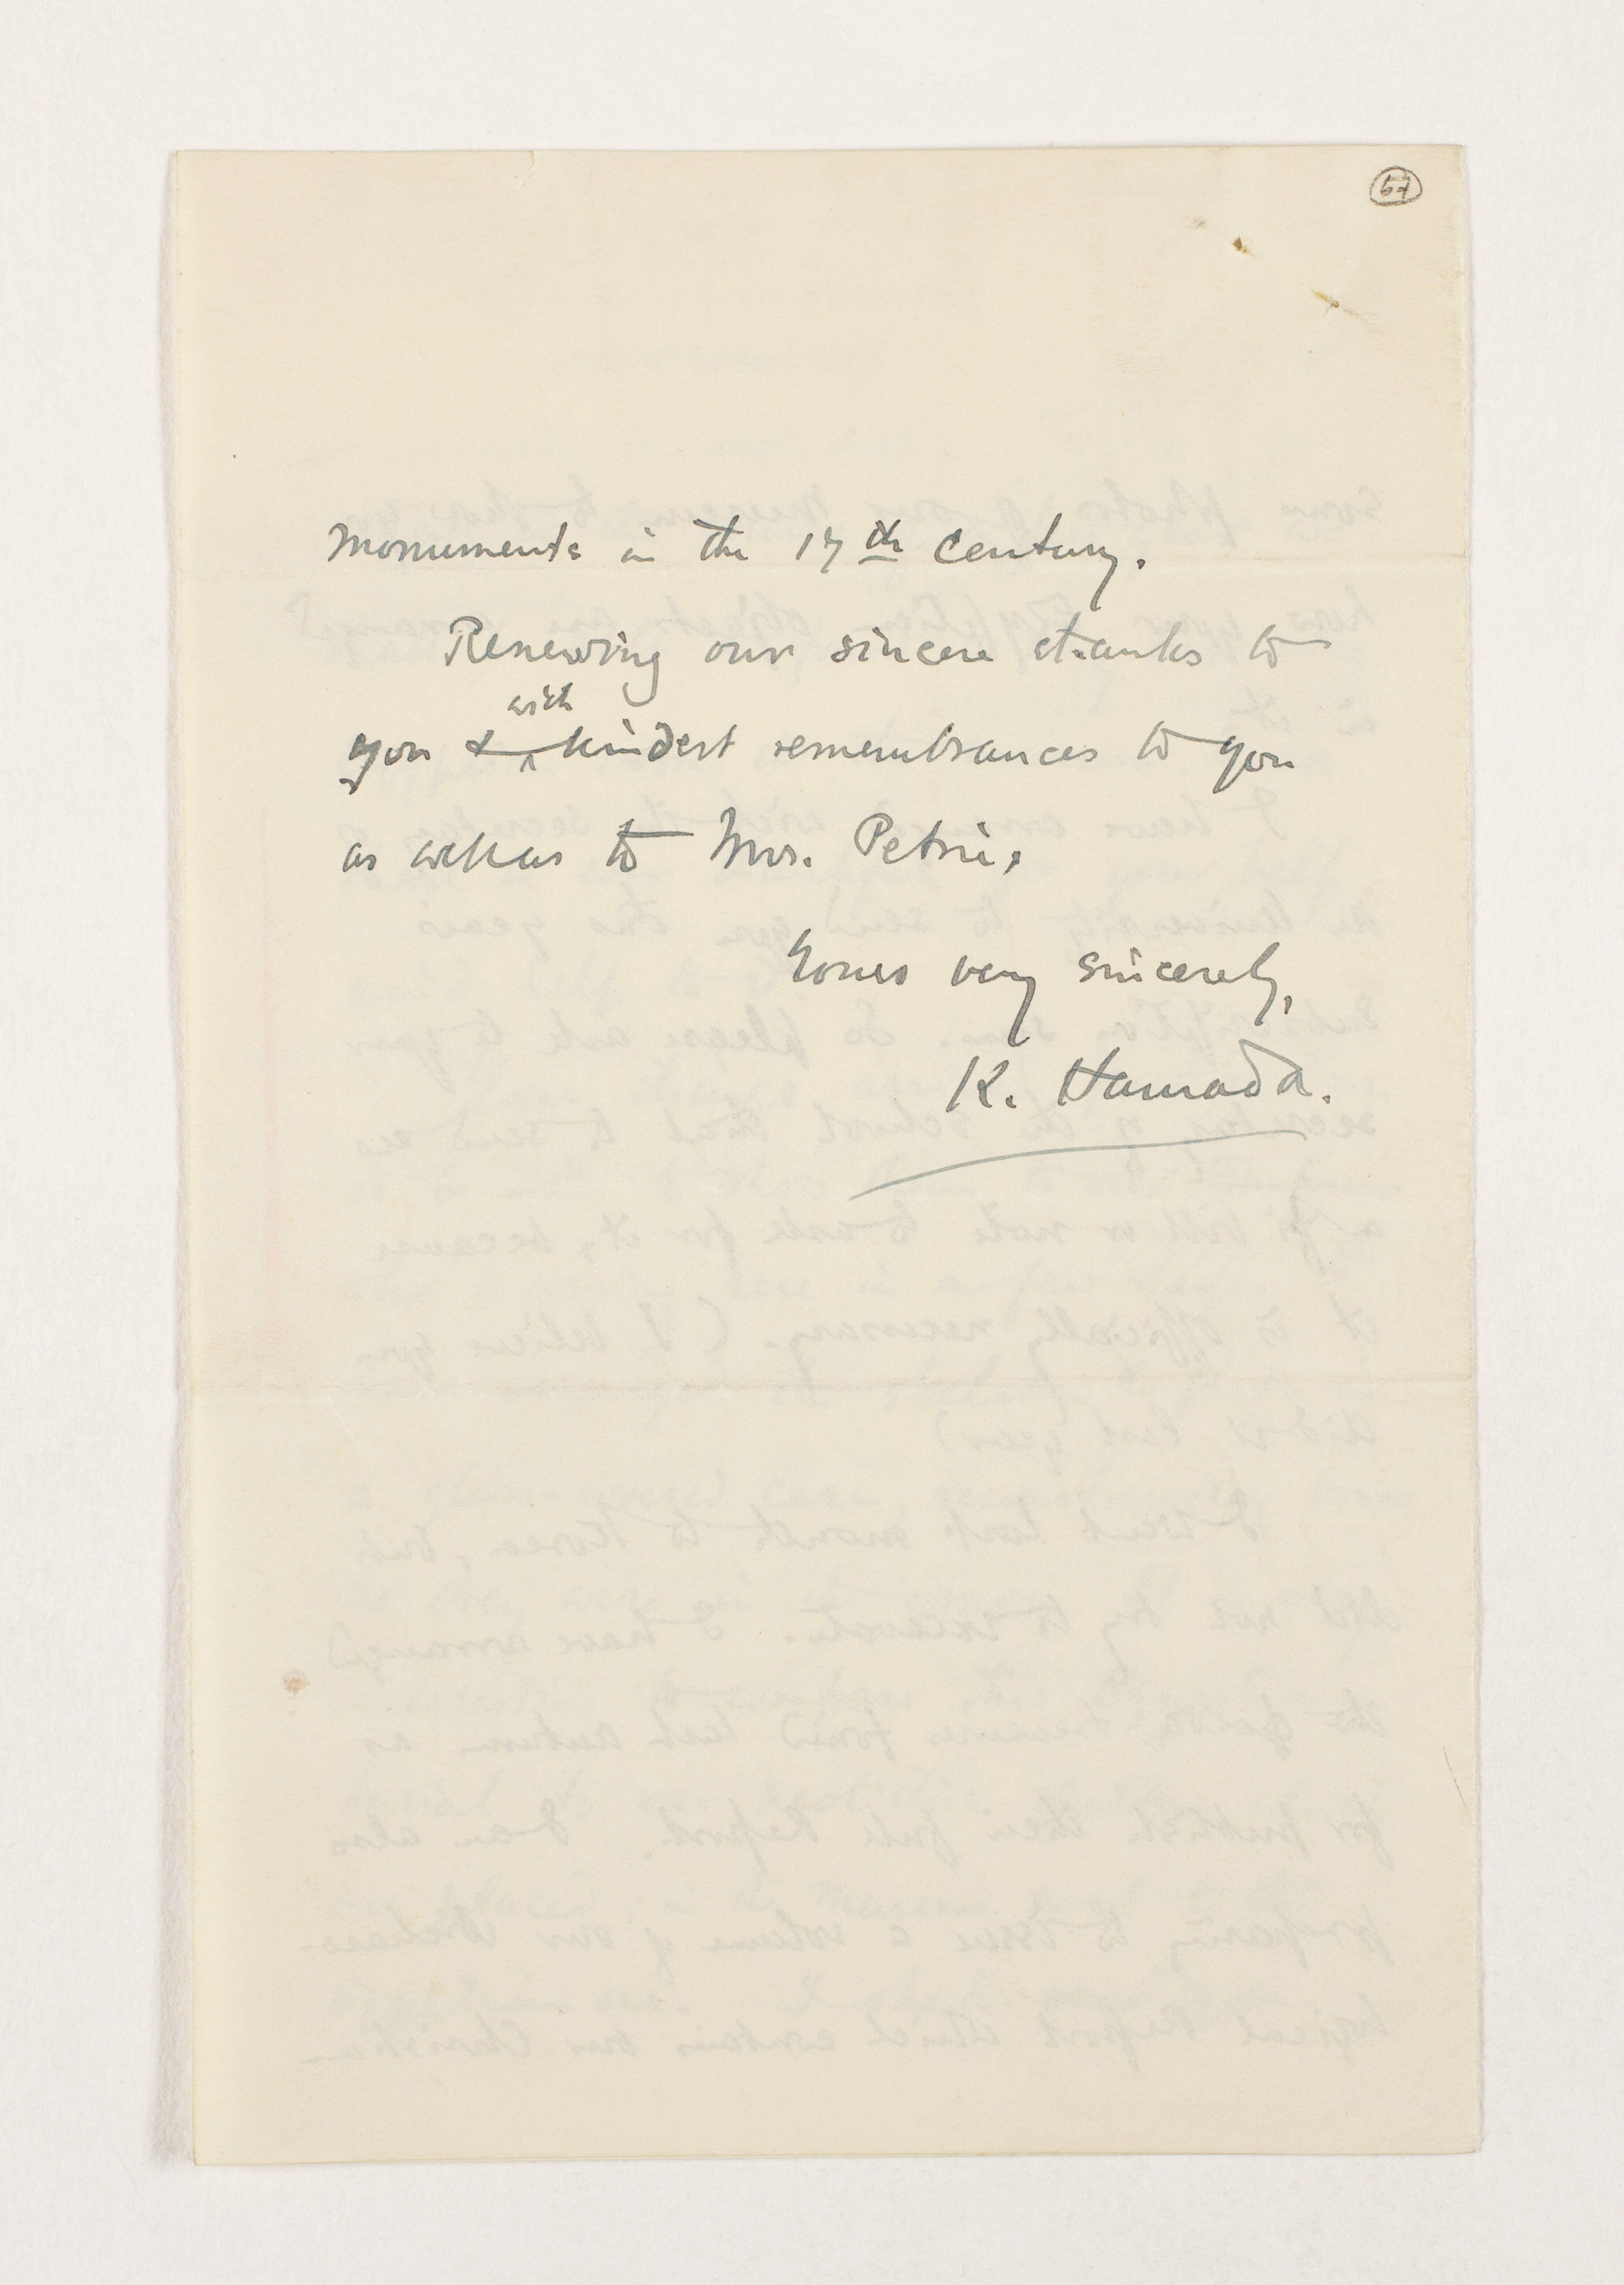 67
monuments in the 17th century.
Renewing our sincere thanks to
with
you & kindest remembrances to you
as well as to Mrs. Petrie,
Yours very sincerely,
K. Hamada.